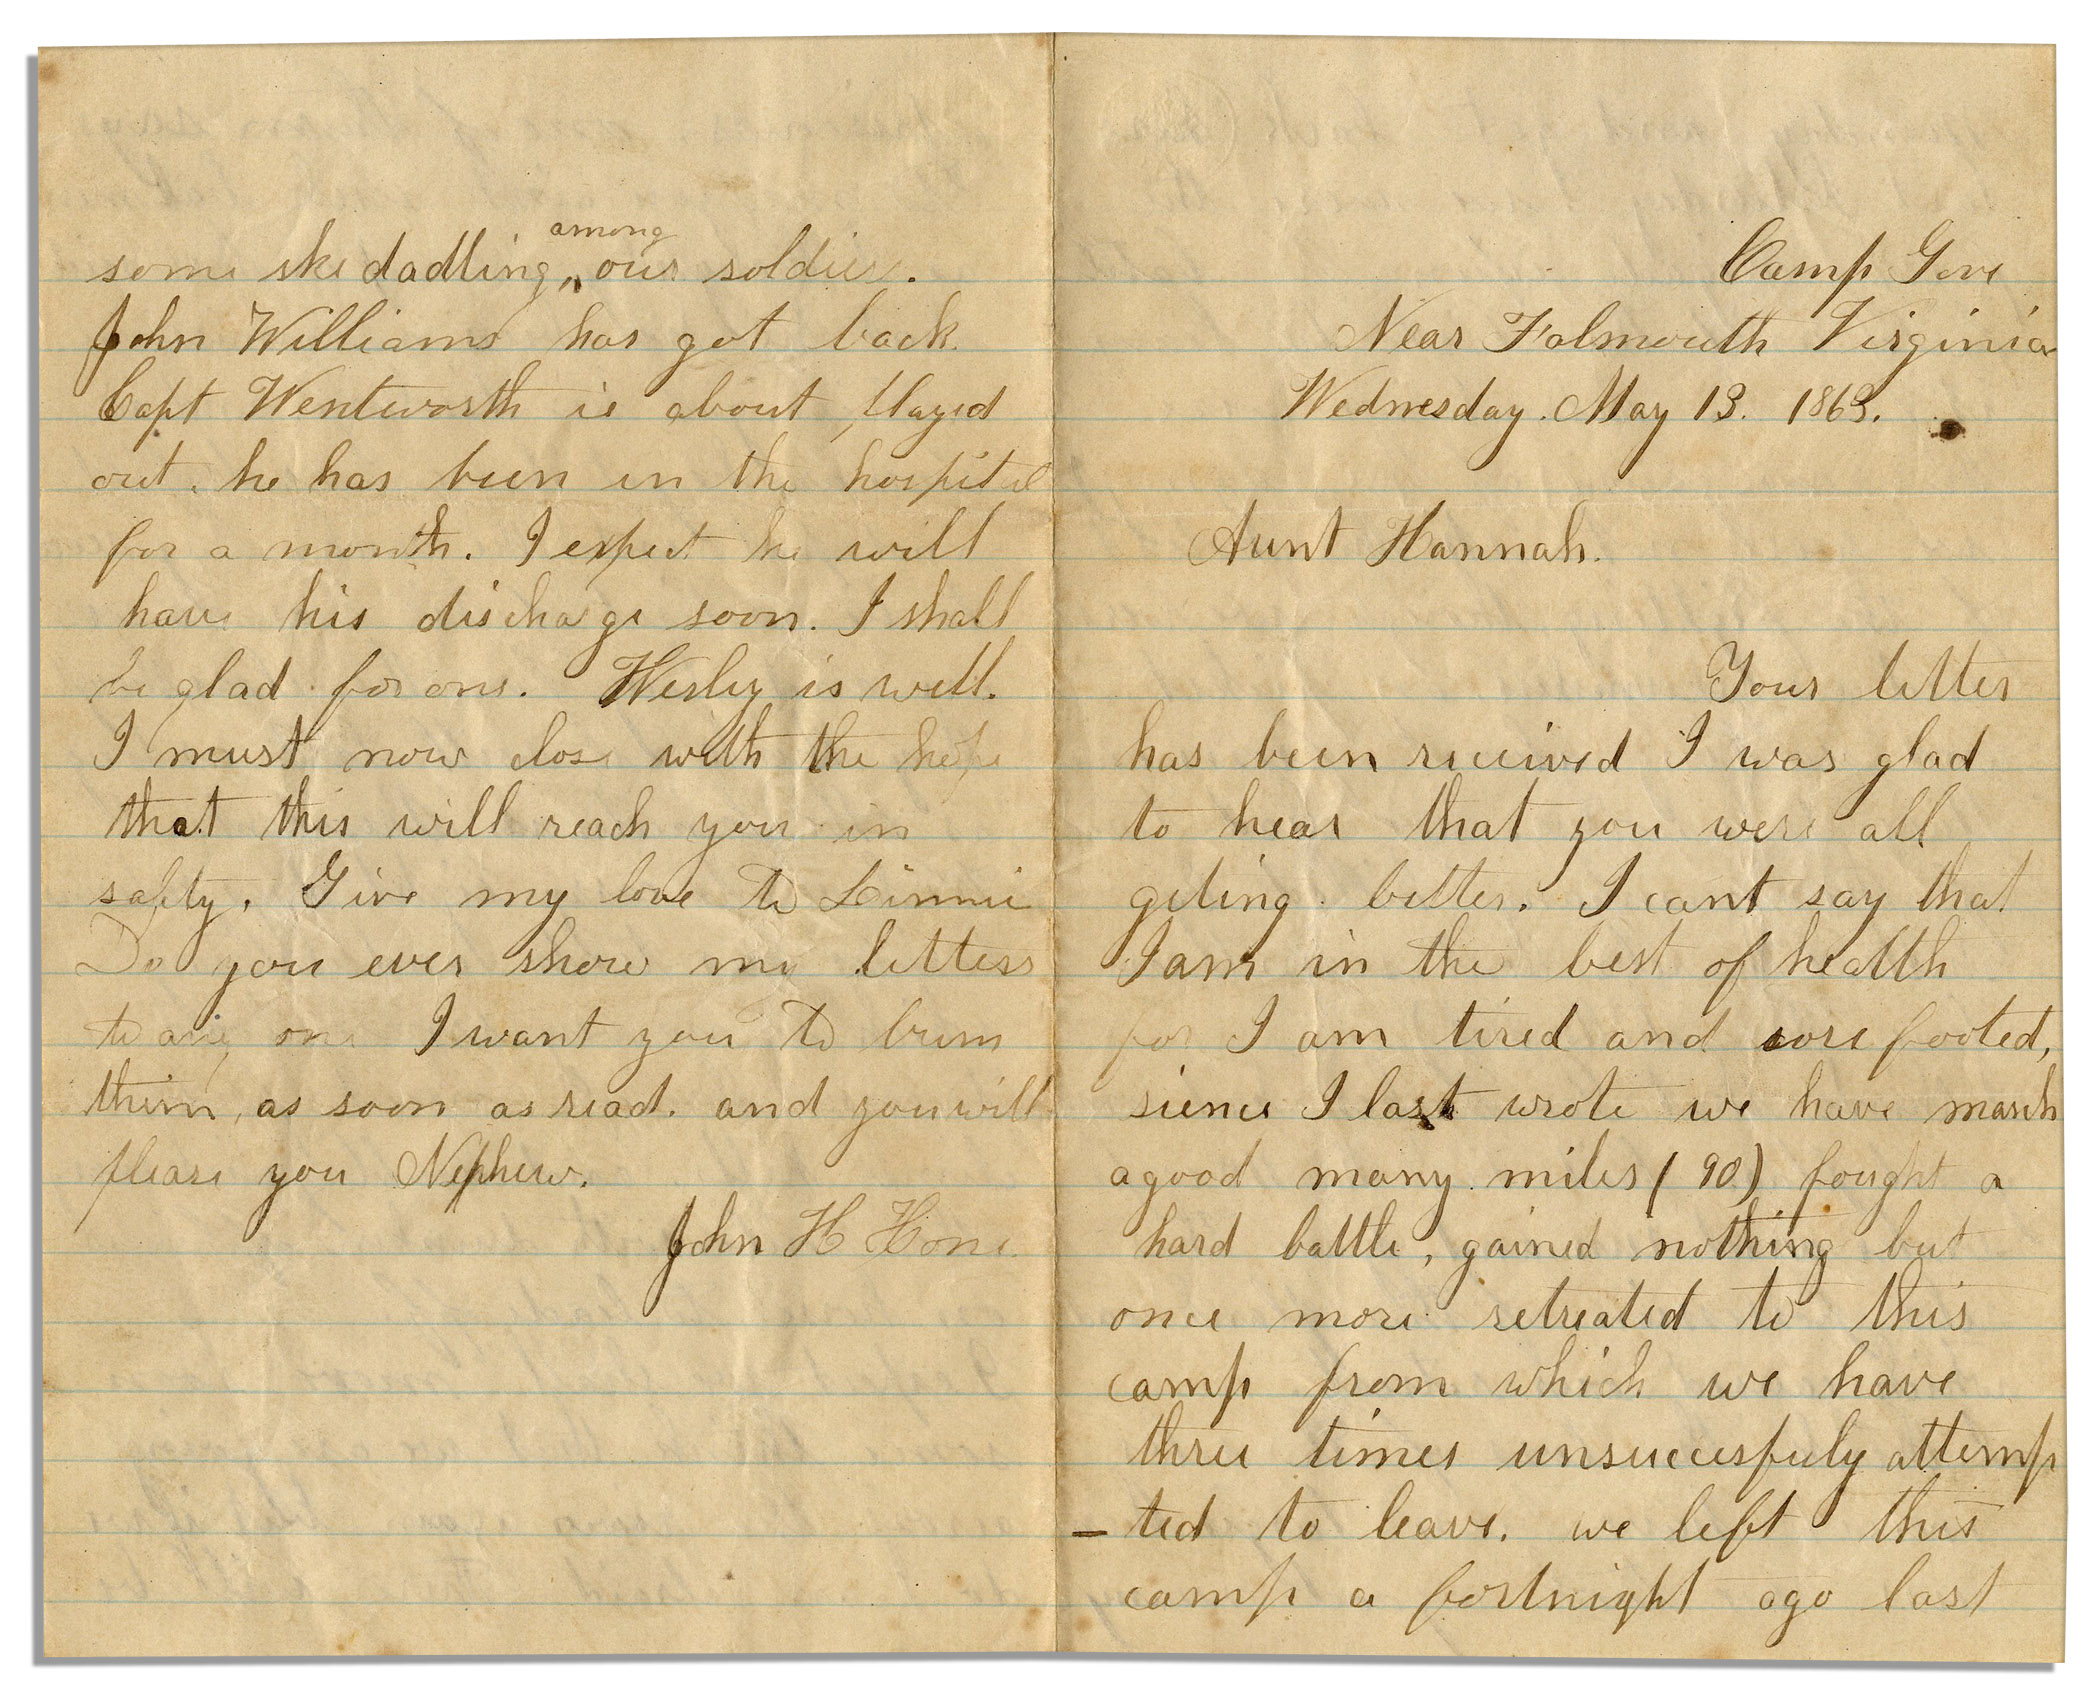 Camp Gove
Near Falmouth Virginia
Wednesday. May 13. 1863.
Aunt Hannah.
Your letter
has been received I was glad
to hear that you were all
geting better. I cant say that
I am in the best of health
for I am tired and sore footed,
sience I last wrote we have march
a good many miles (90) fought a
hard battle, gained nothing but
once more retreated to this
camp from which we have
three times unsuccesfuly attemp
-ted to leave. we left this
camp a fortnight ago last
some skedadling, among our soldiers.
John Williams has got back
Capt Wentworth is about played
out. he has been in the hospital
for a month. I expect he will
have his discharge soon. I shall
be glad for one. Wesley is well.
I must now close with the hope
that this will reach you in
safty. Give my love to Linnie
Do you ever show my letters
to any one I want you to burn
them, as soon as read. and you will
please you Nephew.
John H Hone